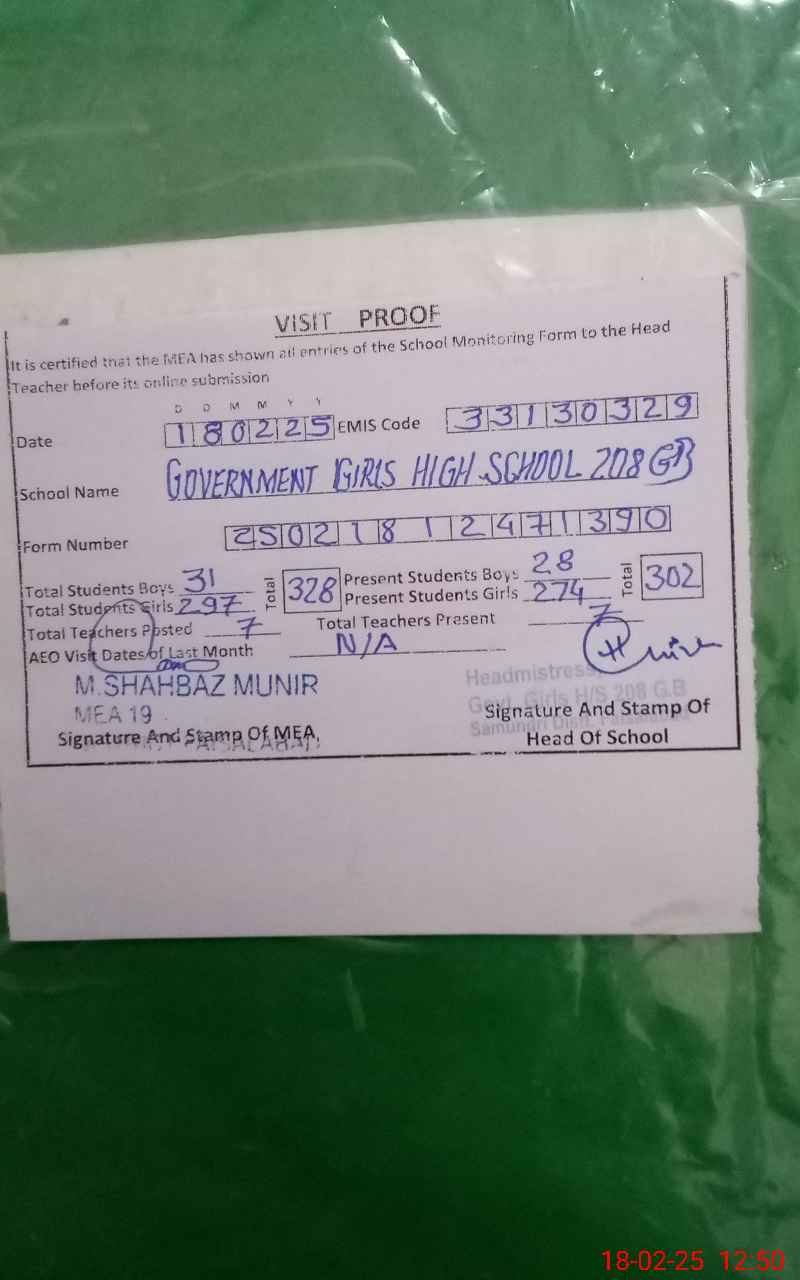 VISIT PROOF
It is certified that the MEA has shown all entries of the School Monitoring Form to the Head
Teacher before its online submission
D D M M Y Y
Date 180225 EMIS Code 33130329
School Name GOVERNMENT GIRLS HIGH SCHOOL 208 GB
Form Number 25021812471390
Total Students Boys 31 Total 328 Present Students Boys 28 Total 302
Total Students Girls 297 Present Students Girls 274
Total Teachers Posted 7 Total Teachers Present 7
AEO Visit Dates of Last Month N/A
M.SHAHBAZ MUNIR Headmistress
MEA 19 Govt. Girls H/S 208 G.B
Signature And Stamp Of MEA Signature And Stamp Of
FAISALABAD Samundri Distt. Faisalabad
Head Of School
18-02-25 12:50